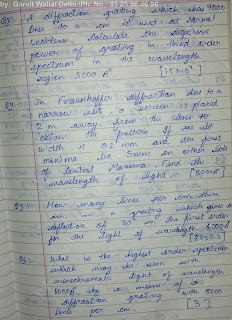 by: Garvit Walia! Delhi (Ph. No.:
Q: A diffraction grating which has 4000
lines to a cm is used at Normal
Incidence. Calculate the dispersive
power of grating in third order
spectrum in the wavelength
region 5000 A°
Q: In Fraunhoffer diffraction due to a
narrow slit a screen is placed
2 m away from the lens to
obtain the pattern If the slit
width is 0.2 mm and the first
minima lie 5mm on either side
of central Maxima find the
wavelength of light [5000A°]
Q: How many lines per cm there
are in a grating which gives a
deflection of 30° in the first order
for the light of wavelength
Q: What is the highest order spectrum
which may be seen with
monochromatic light of wavelength
by means of a
diffraction grating with 5000
lines per cm. [3]